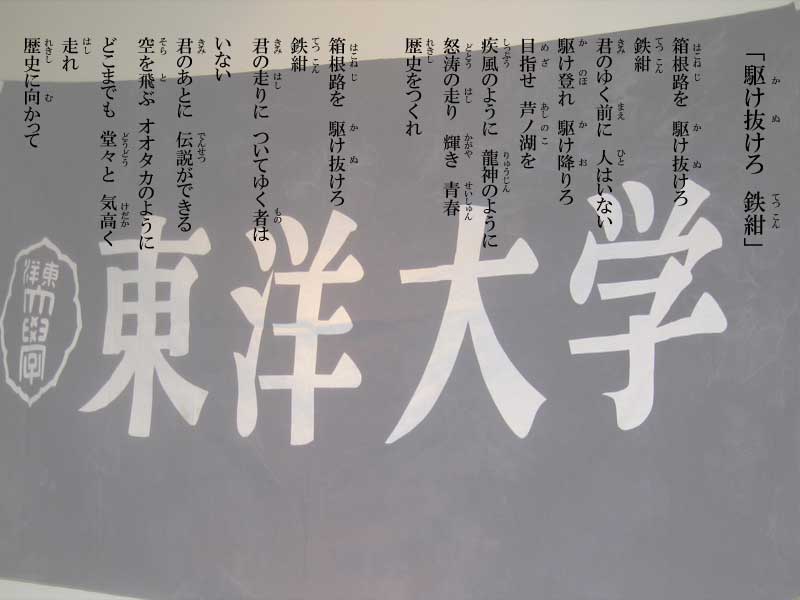 「駆け抜けろ 鉄紺」
箱根路を 駆け抜けろ
鉄紺
君のゆく前に 人はいない
駆け登れ 駆け降りろ
目指せ 芦ノ湖を
疾風のように 龍神のように
怒涛の走り 輝き 青春
歴史をつくれ
箱根路を 駆け抜けろ
鉄紺
君の走りに ついてゆく者は
いない
君のあとに 伝説ができる
空を飛ぶ オオタカのように
どこまでも 堂々と 気高く
走れ
歴史に向かって
東洋大学
東洋
大學